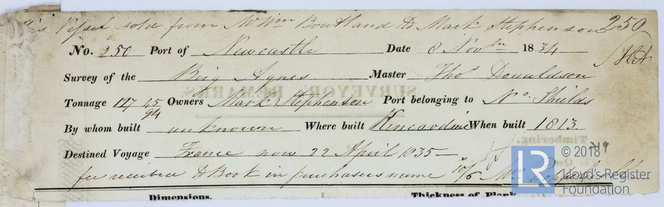 Vessel sold from Mr Wm Boutland to Mark Stephenson 250
No. 250 Port of Newcastle Date 8 Novbr 1834
Survey of the Brig Agnes Master Thos Donaldson
SURVEYOR REMARKS
Tonnage 127 45/94 Owners Mark Stephenson Port belonging to No. Shields
By whom built unknown Where built Kincardine When built 1813
Timbering.
Destined Voyage France now 22 April 1835
fee received to Book in purchasers name
Dimensions. Thickness of Plank
LR © 2018
Lloyd's Register
Foundation